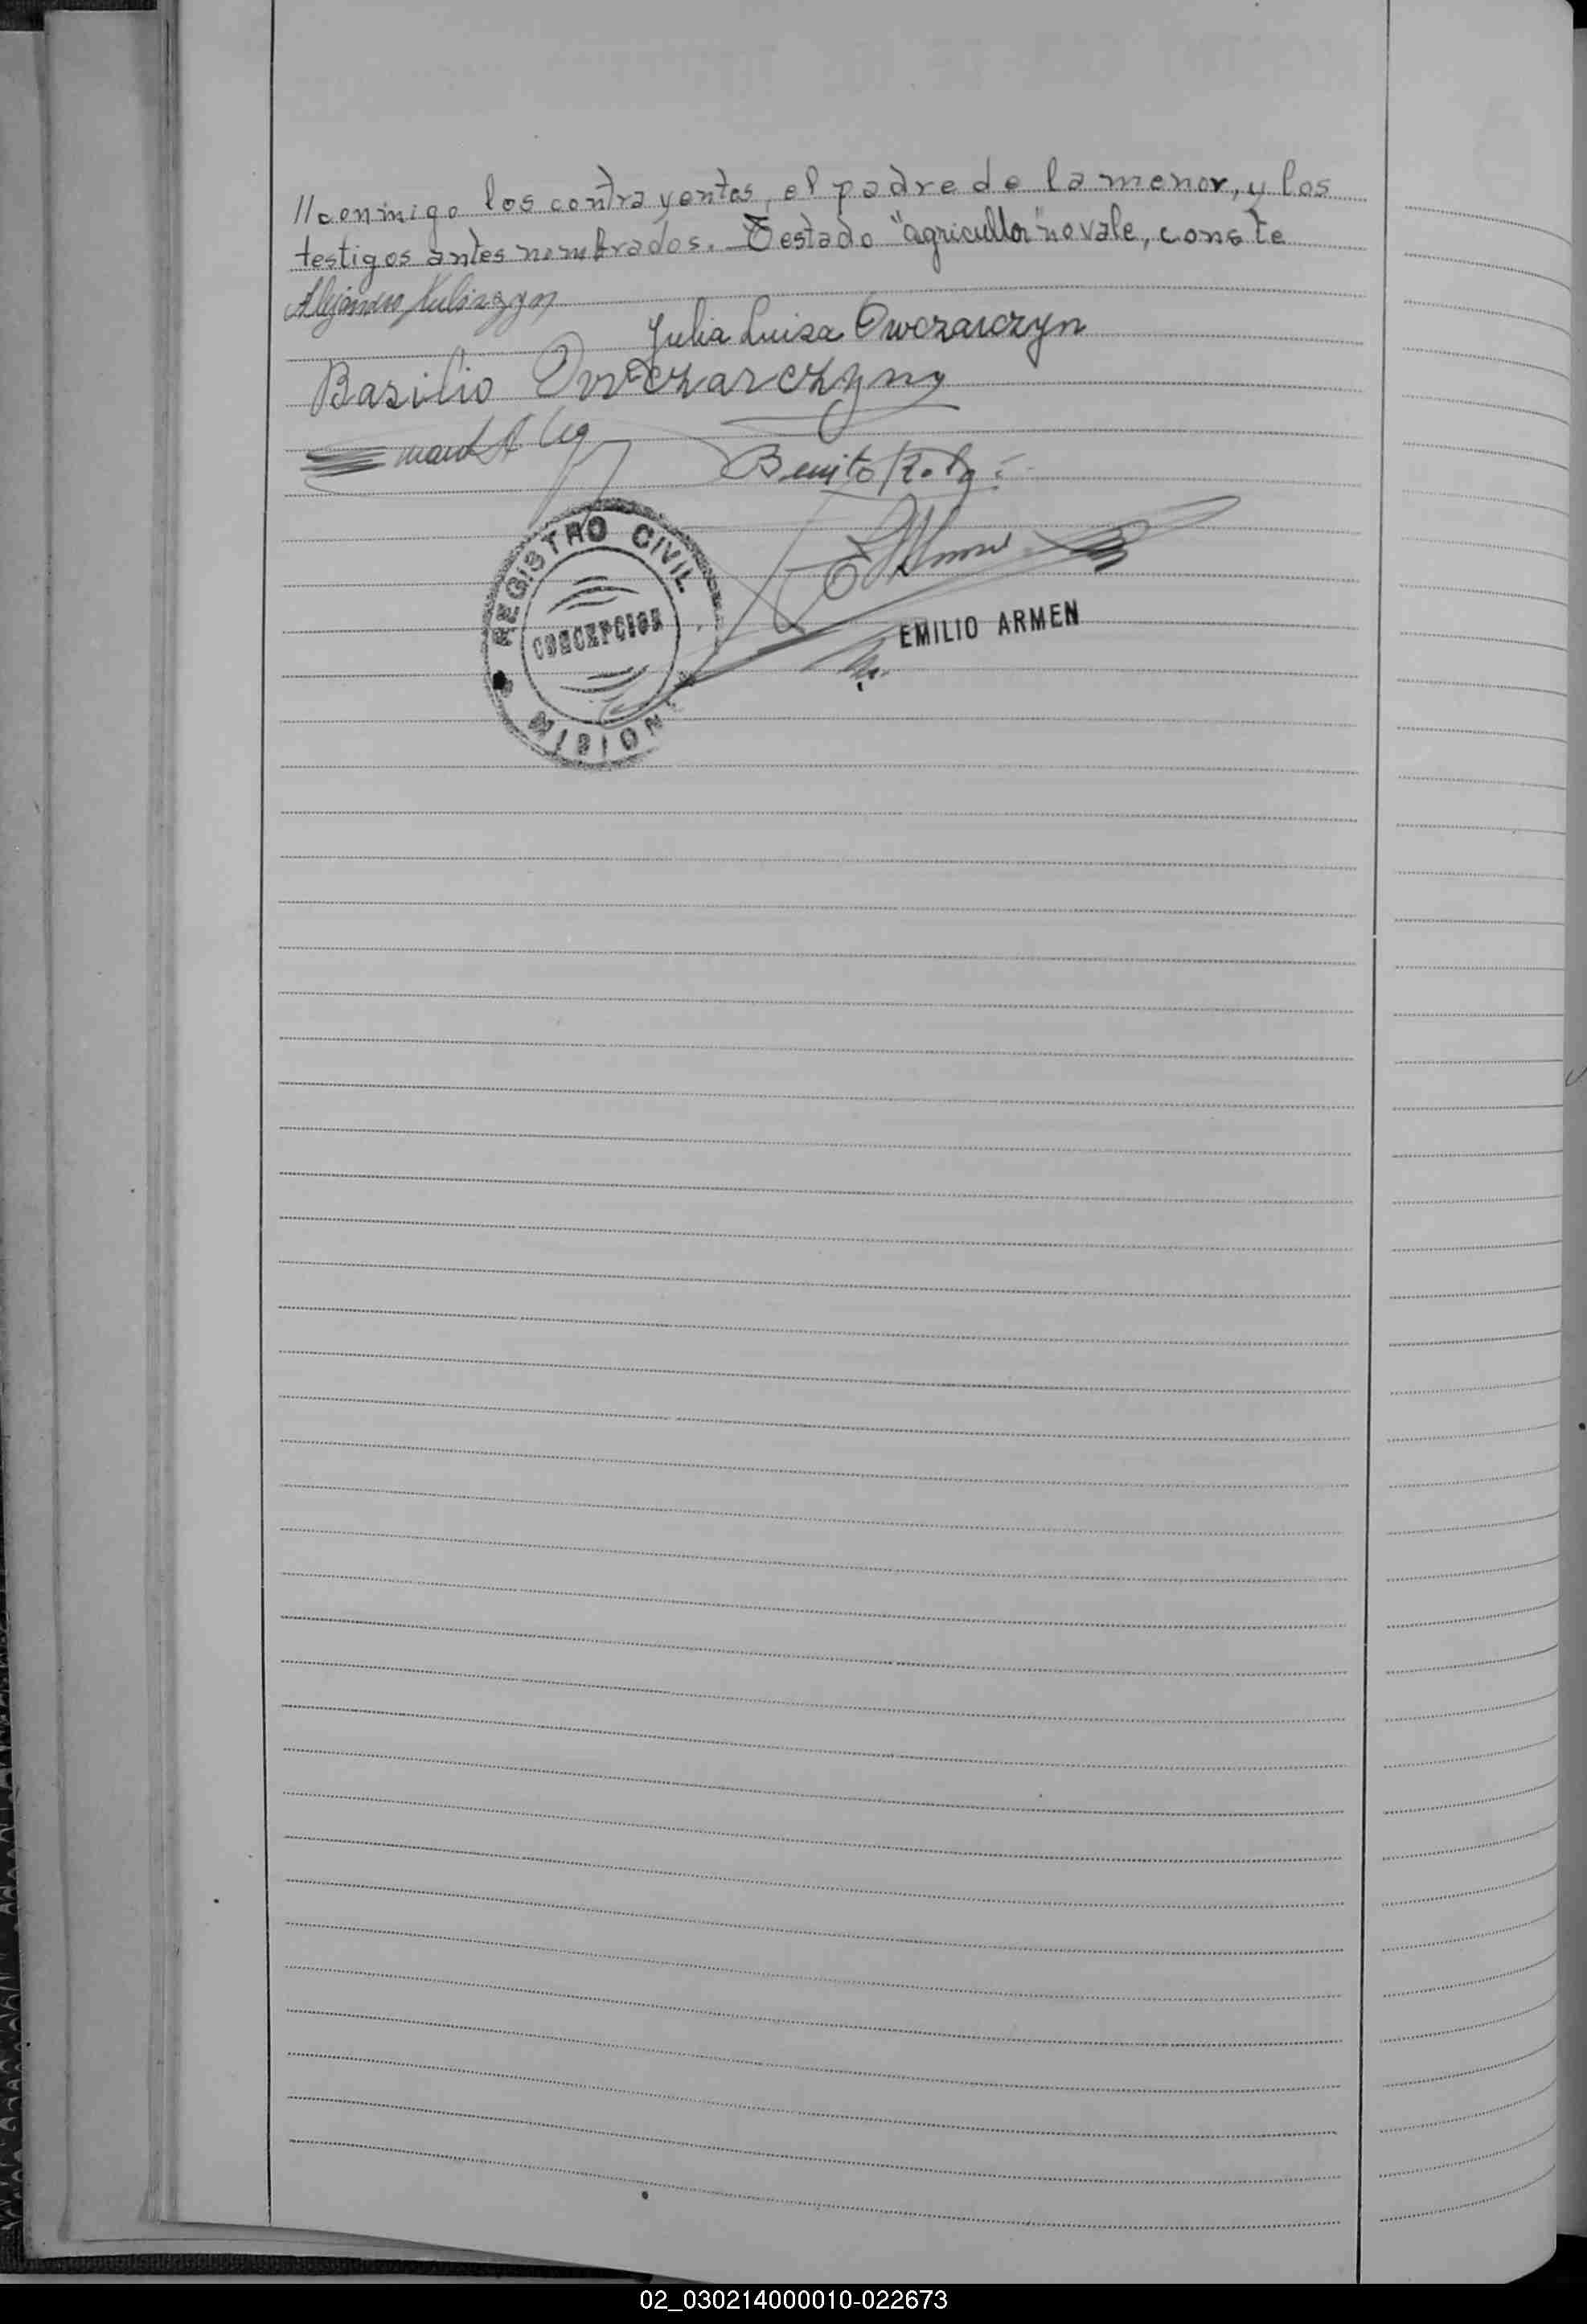 //conmigo los contrayentes, el padre de la menor, y los
testigos antes nombrados. Testado "agricultor" no vale, conste
Alejandro
Julia Luisa Owczarczyn
Basilio Owczarczyny
Benito
REGISTRO CIVIL
CONCEPCION
MISION
EMILIO ARMEN
02_030214000010-022673